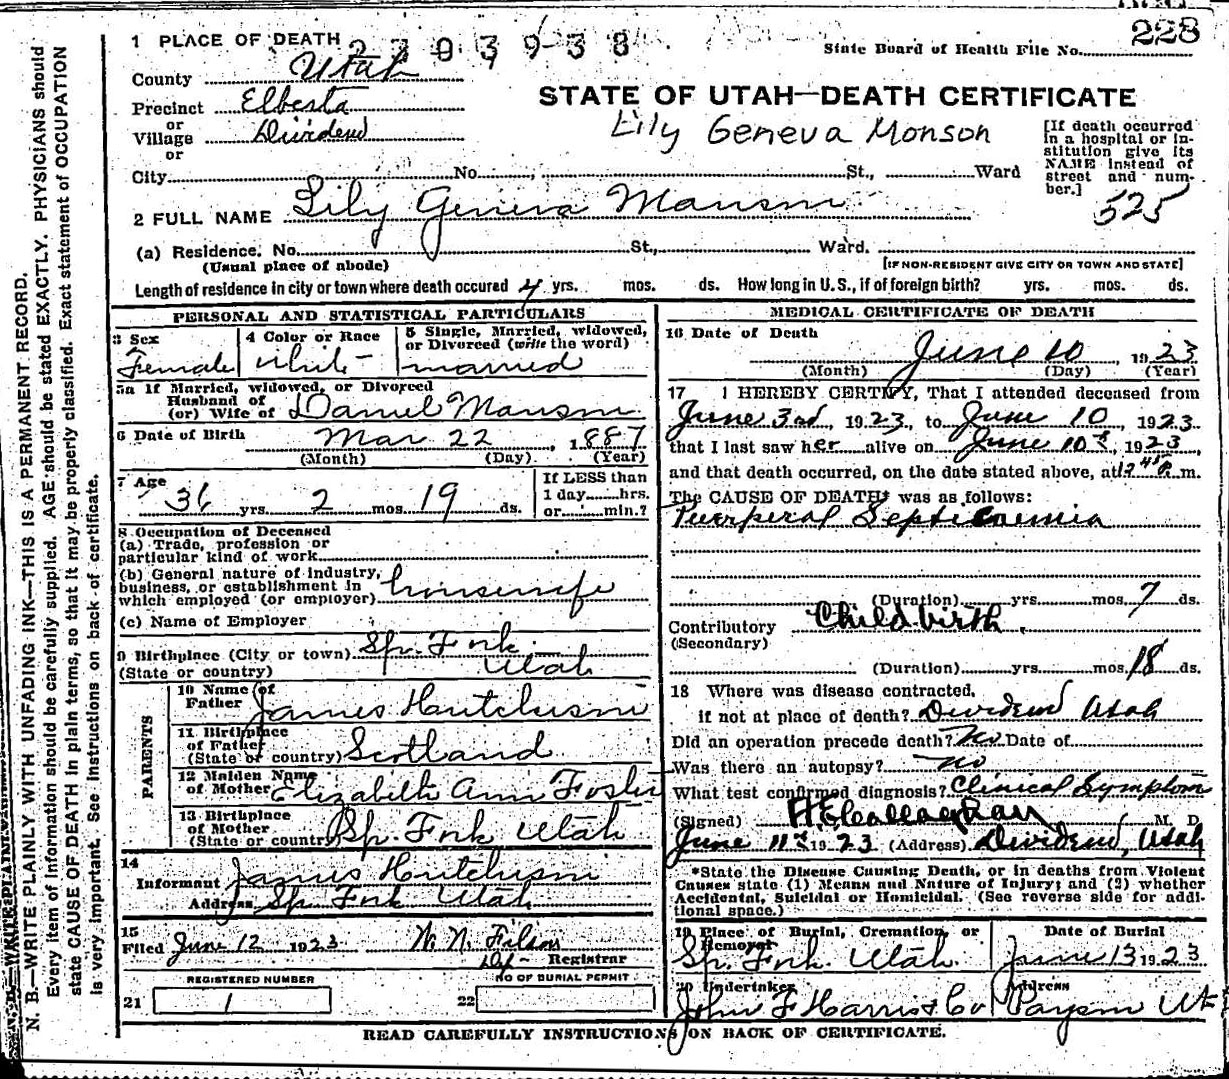 228
State Board of Health File No.
1 PLACE OF DEATH 2703938
County Utah
STATE OF UTAH—DEATH CERTIFICATE
Precinct Elberta
or
Village Dividend
or
Lily Geneva Monson
[If death occurred in a hospital or institution give its NAME instead of street and number.]
City No. St., Ward
525
2 FULL NAME Lily Geneva Manson
(a) Residence. No. St., Ward.
(Usual place of abode)
[IF NON-RESIDENT GIVE CITY OR TOWN AND STATE]
Length of residence in city or town where death occured 4 yrs. mos. ds. How long in U.S., if of foreign birth? yrs. mos. ds.
PERSONAL AND STATISTICAL PARTICULARS
3 Sex
Female
4 Color or Race
White
5 Single, Married, widowed,
or Divorced (write the word)
married
5a If Married, widowed, or Divorced
Husband of
(or) Wife of Daniel Manson
6 Date of Birth Mar 22, 1887
(Month) (Day) (Year)
7 Age
36 yrs. 2 mos. 19 ds.
If LESS than
1 day......hrs.
or......min.?
8 Occupation of Deceased
(a) Trade, profession or
particular kind of work
(b) General nature of industry,
business, or establishment in
which employed (or employer) housewife
(c) Name of Employer
9 Birthplace (City or town) Sp. Fork
(State or country) Utah
PARENTS
10 Name of
Father James Hutchison
11 Birthplace
of Father
(State or country) Scotland
12 Maiden Name
of Mother Elizabeth Ann Foster
13 Birthplace
of Mother
(State or country) Sp. Fork Utah
14
Informant James Hutchison
Address Sp. Fork Utah
15
Filed June 12 1923
Registrar
REGISTERED NUMBER
21 1
NO OF BURIAL PERMIT
22
MEDICAL CERTIFICATE OF DEATH
16 Date of Death
June 10, 1923
(Month) (Day) (Year)
17 I HEREBY CERTIFY, That I attended deceased from
June 3rd, 1923, to June 10, 1923
that I last saw her alive on June 10th, 1923,
and that death occurred, on the date stated above, at 12 45 P. m.
The CAUSE OF DEATH* was as follows:
Puerperal Septicaemia
(Duration) yrs. mos. 7 ds.
Contributory Childbirth.
(Secondary)
(Duration) yrs. mos. 18 ds.
18 Where was disease contracted,
if not at place of death? Dividend Utah
Did an operation precede death? No Date of
Was there an autopsy? no
What test confirmed diagnosis? Clinical Symptom
(Signed) H.E. Callaghan M. D.
June 11th 1923 (Address) Dividend, Utah
*State the Disease Causing Death, or in deaths from Violent
Causes state (1) Means and Nature of Injury; and (2) whether
Accidental, Suicidal or Homicidal. (See reverse side for addi-
tional space.)
19 Place of Burial, Cremation, or
Removal
Sp. Fork. Utah.
Date of Burial
June 13 1923
20 Undertaker
John F Harris & Co
Address
Payson Ut
READ CAREFULLY INSTRUCTIONS ON BACK OF CERTIFICATE.
N. B.—WRITE PLAINLY WITH UNFADING INK—THIS IS A PERMANENT RECORD.
Every item of information should be carefully supplied. AGE should be stated EXACTLY. PHYSICIANS should
state CAUSE OF DEATH in plain terms, so that it may be properly classified. Exact statement of OCCUPATION
is very important. See instructions on back of certificate.